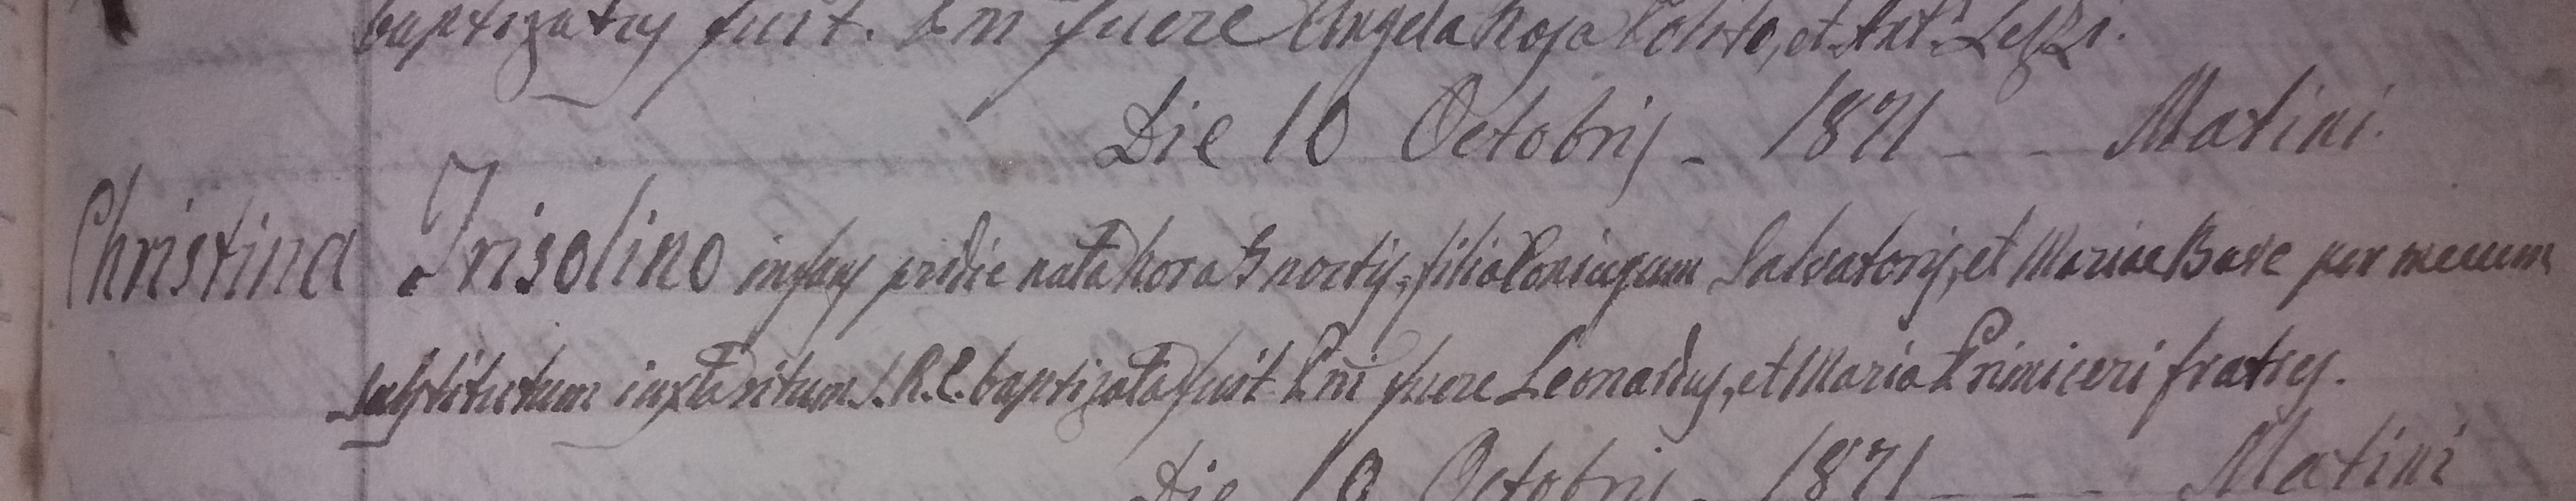 baptizatus fuit. Pni fuere Angela Rosa Polito, et Ant.º Lezzi.
Die 10 Octobris - 1871 - - Matini.
Christina Frisolino infans pridie nata hora 5 noctis, filia Coniugum Salvatoris, et Mariae Bove per meum
substitutum iuxta ritum S. R. E. baptizata fuit Pni fuere Leonardus, et Maria Primiceri fratres.
Die 10 Octobris - 1871 - - - Matini